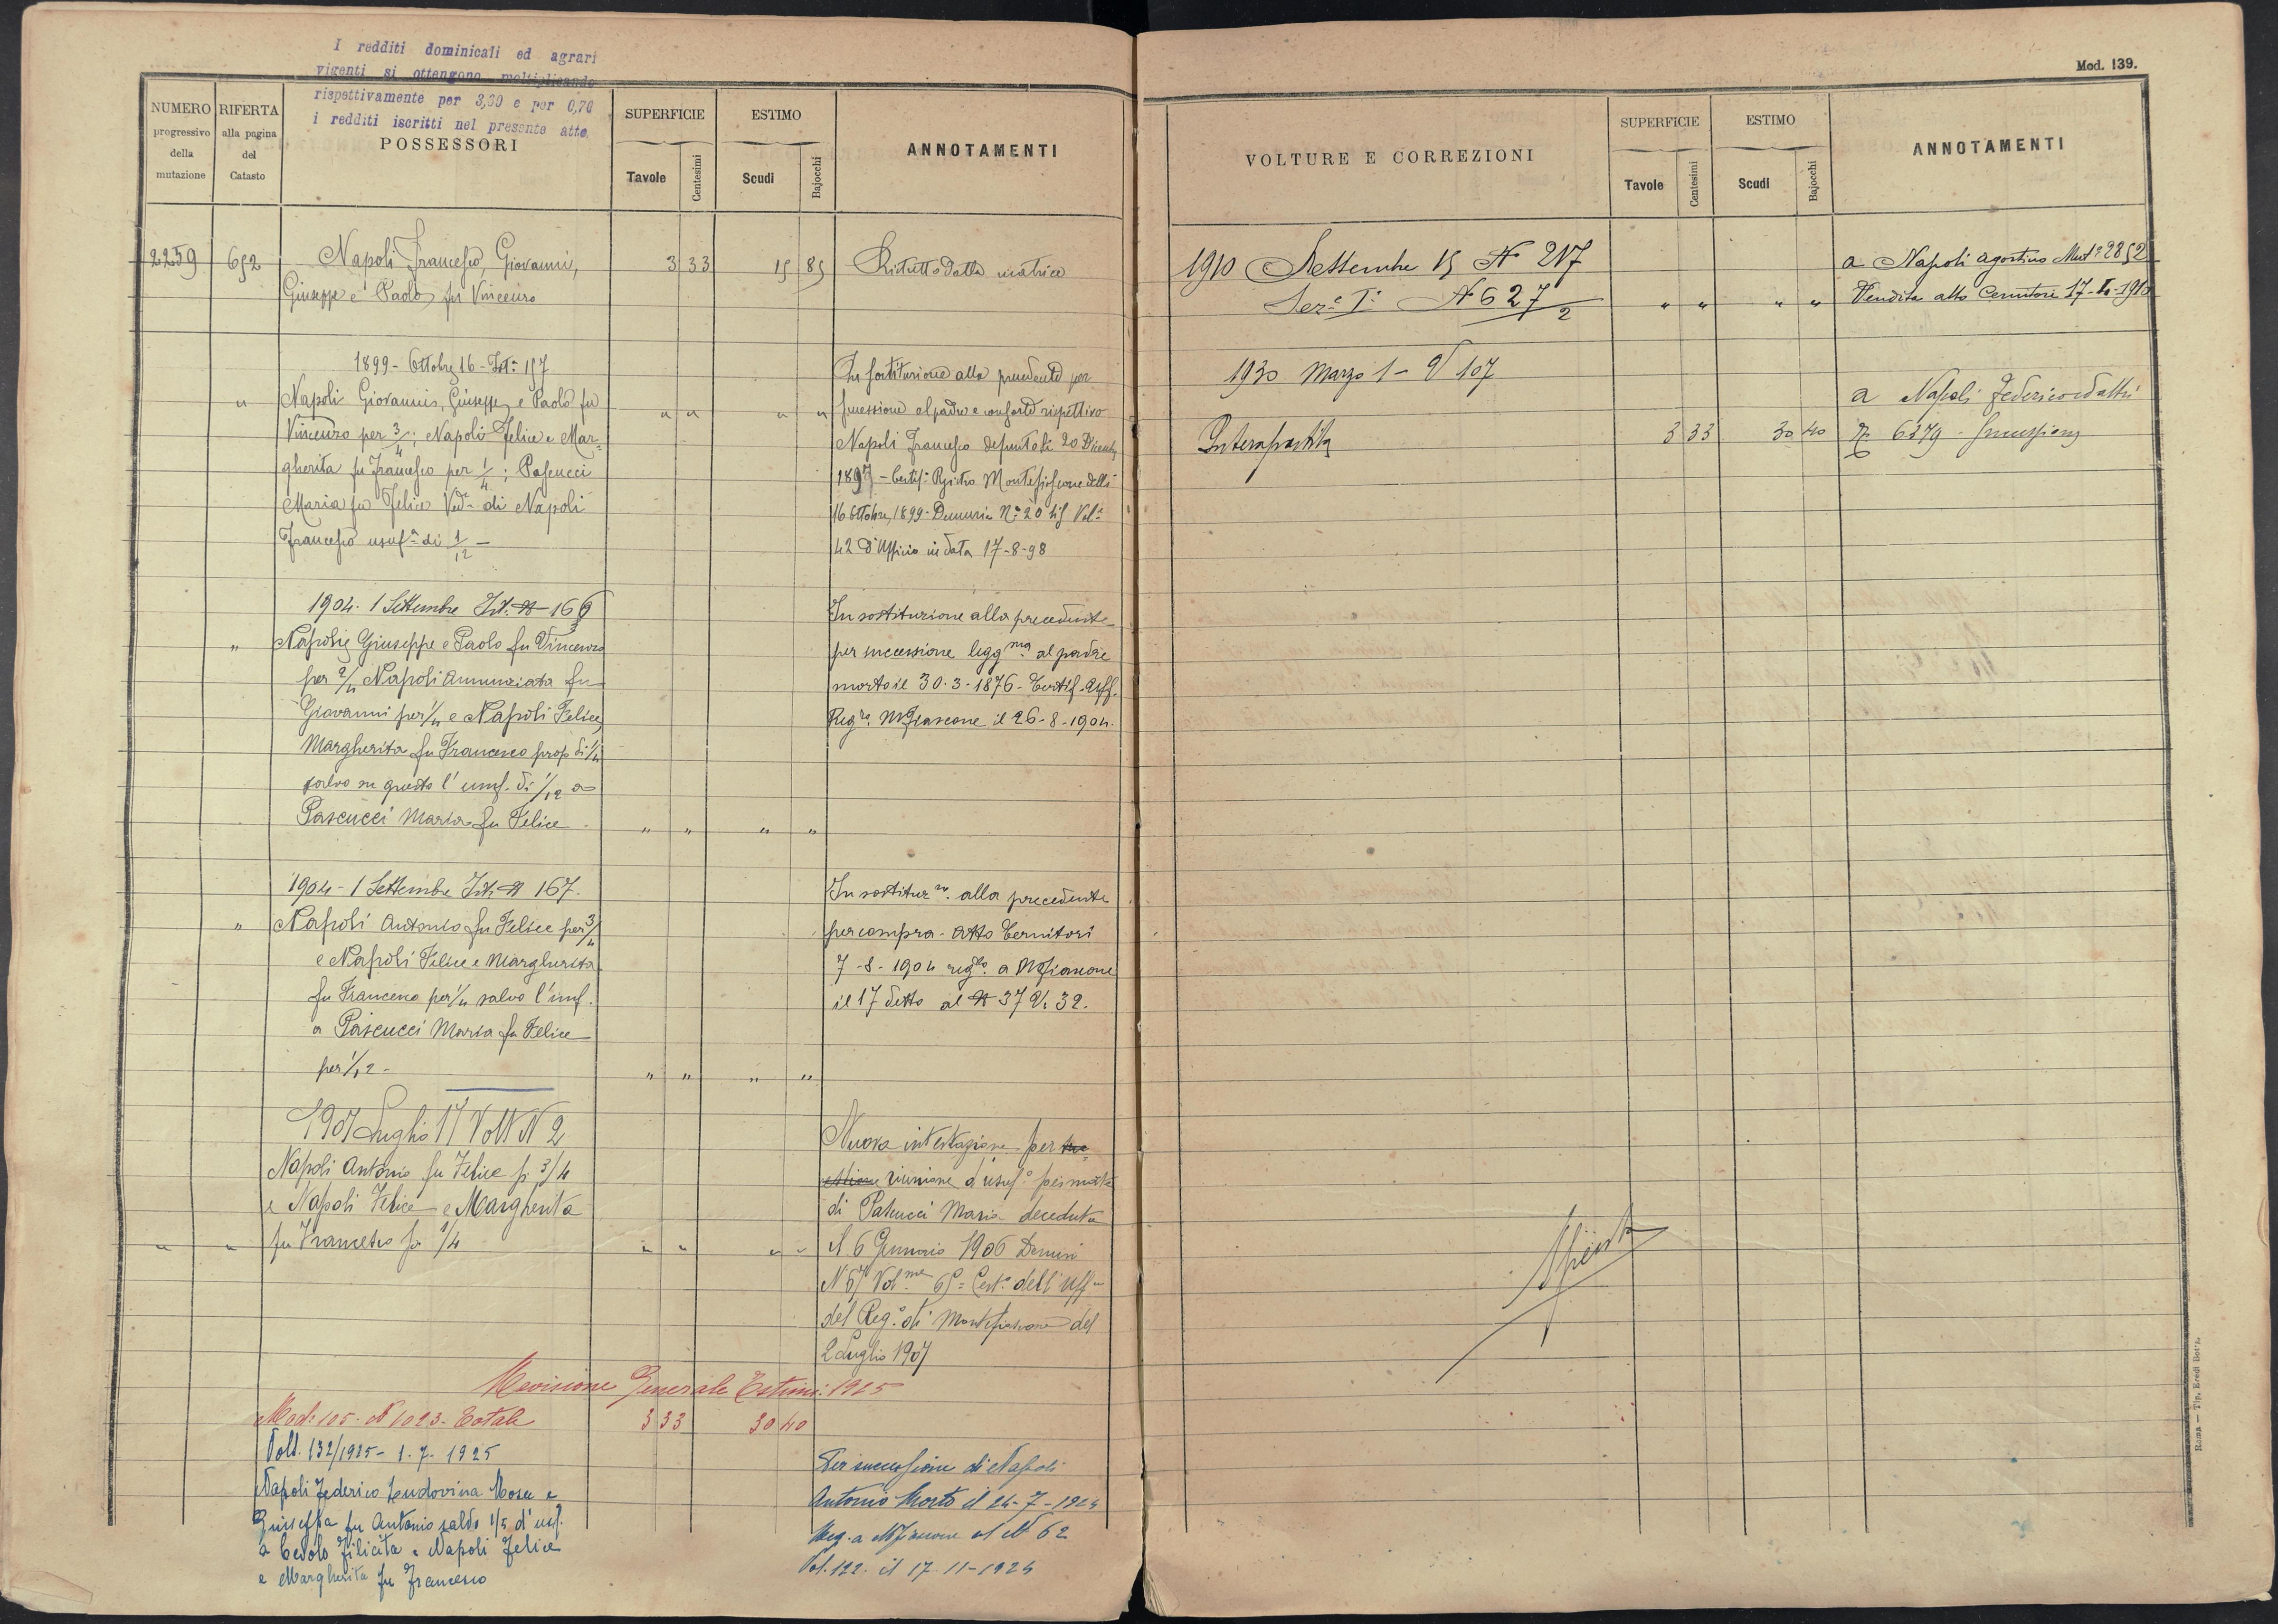 I redditi dominicali ed agrari
vigenti si ottengono moltiplicando
rispettivamente per 3,60 e per 0,70
i redditi iscritti nel presente atto.
NUMERO
progressivo
della
mutazione
RIFERTA
alla pagina
del
Catasto
POSSESSORI
SUPERFICIE
Tavole
Centesimi
ESTIMO
Scudi
Bajocchi
ANNOTAMENTI
2259 652 Napoli Francesco, Giovanni, 3 33 15 85 dalla matrice
Giuseppe e Paolo fu Vincenzo
1899 - Ottobre 16 - Ist. 157
" Napoli Giovanni, Giuseppe, e Paolo fu " " " "
Vincenzo per 3/4; Napoli Felice e Mar=
gherita fu Francesco per 1/4; Pascucci
Maria fu Felice Ved. di Napoli
Francesco usuf. di 1/12 -
alla precedente per
successione al padre e consorte rispettivo
Napoli Francesco defunto li 20
1897 - Certif. Montefiascone delli
16 Ottobre, 1899 - Denunzia N. 20 Vol.
42 d'Ufficio in data 17-8-98
1904. 1 Settembre Ist. N 166
" Napoli Giuseppe e Paolo fu Vincenzo
per 2/4 Napoli Annunziata fu
Giovanni per 1/4 e Napoli Felice,
Margherita fu Francesco prop di 1/4
salvo su questo l'usuf. di 1/12 a
Pascucci Maria fu Felice " " " "
In sostituzione alla precedente
per successione legg.ma al padre
morto il 30.3.1876 - Certif. Uff.
Reg.ro Mfiascone il 26-8-1904.
1904 - 1 Settembre Ist. N 167.
" Napoli Antonio fu Felice per 3/4
e Napoli Felice e Margherita
fu Francesco per 1/4 salvo l'usuf.
a Pascucci Maria fu Felice
per 1/12 - " " " "
In sostituz.ne alla precedente
per compra - Atto Cernitori
7-8-1904 reg.to a Mfiascone
il 17 detto al N 37 V. 32.
1907 Luglio 17 Volt N 2
Napoli Antonio fu Felice p. 3/4
e Napoli Felice e Margherita
" " fu Francesco p. 1/4 " " " "
Nuova intestazione per
riunione d'usuf.o per morte
di Pascucci Maria deceduta
il 6 Gennaio 1906
N 67 Vol.me 65 = Cert.o dell'Uff.
del Reg.o di Montefiascone del
2 Luglio 1907
Revisione Generale Estimi 1925
Mod. 105. N 1023 - Totale 3 33 30 40
Volt. 132/1925 - 1.7.1925
Napoli Federico Rosa e
Giuseppa fu Antonio saldo 1/5 d'usuf.
a Filicita e Napoli Felice
e Margherita fu Francesco
Per successione di Napoli
Antonio morto il 24-7-1924
Reg. a Mfiascone al N 62
Vol. 122 il 17-11-1924
Mod. 139.
VOLTURE E CORREZIONI
SUPERFICIE
Tavole
Centesimi
ESTIMO
Scudi
Bajocchi
ANNOTAMENTI
1910 Settembre 15 N 217 a Napoli Agostino Mut.e 2852
Sez.e I.a N 627/2 " " " " Vendita atto Cernitori
1930 Marzo 1 - V 107
a Napoli Federico ed altri
Intera partita 3 33 30 40 6379 - Successione
Roma — Tip. Eredi Botta